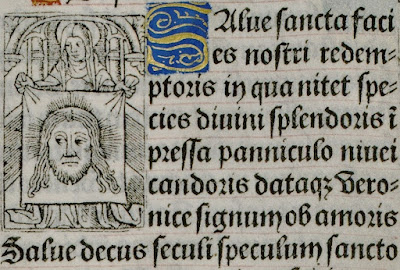 Salue sancta faci
es nostri redem-
ptoris in qua nitet spe-
cies diuini splendoris ī
pressa panniculo niuei
candoris dataqꝫ Vero-
nice signum ob amoris
Salue decus seculi speculum sancto